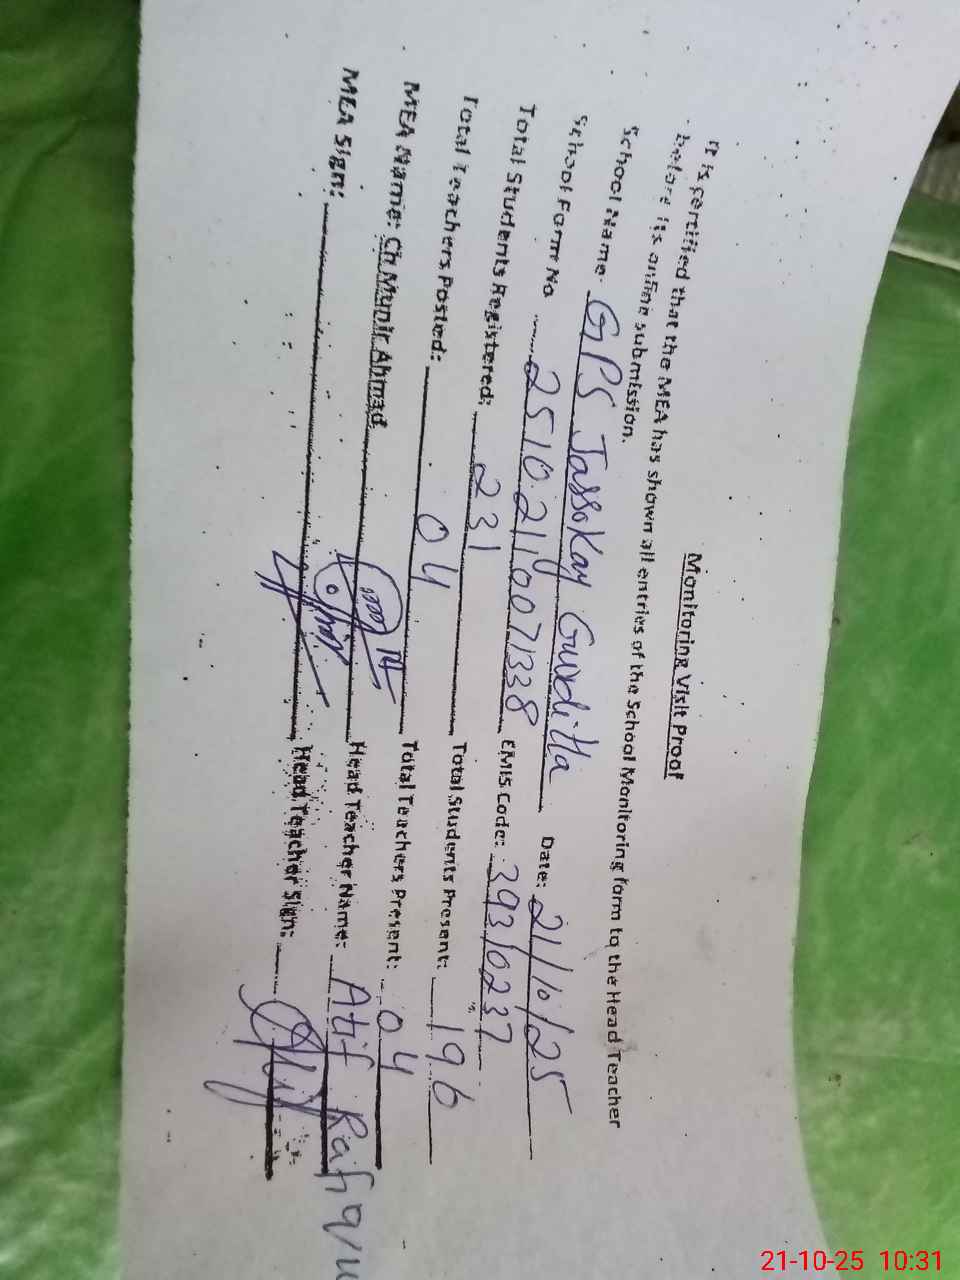 Monitoring Visit Proof
It is certified that the MEA has shown all entries of the School Monitoring form to the Head Teacher
before its online submission.
School Name: GPS Jassokay Gurditta Date: 21/10/25
School Form No 25102110071338 EMIS Code: 39310237
Total Students Registered: 231 Total Students Present: 196
Total Teachers Posted: 04 Total Teachers Present: 04
MEA Name: Ch Munir Ahmad Head Teacher Name: Atif Rafiq
MEA Sign: Head Teacher Sign:
21-10-25 10:31